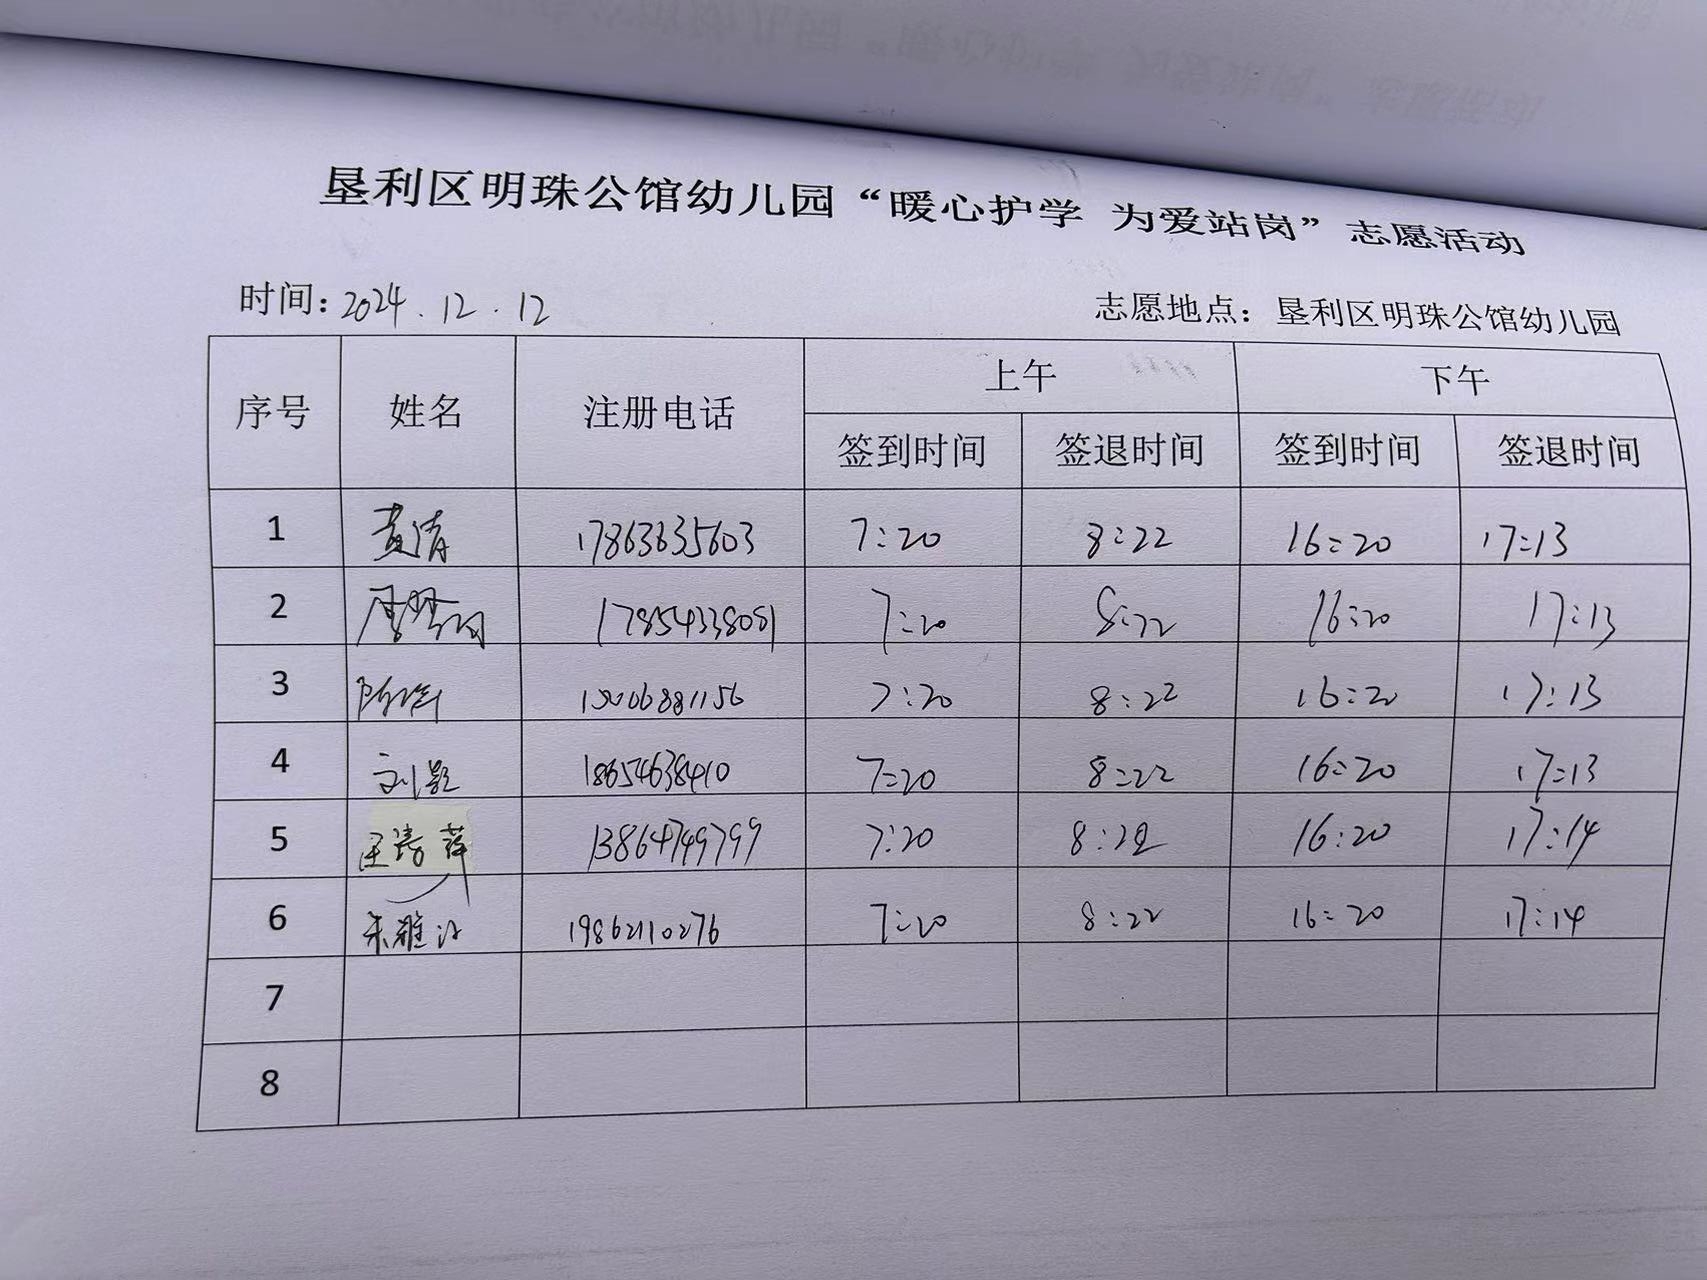 垦利区明珠公馆幼儿园“暖心护学 为爱站岗”志愿活动
时间：2024.12.12 志愿地点：垦利区明珠公馆幼儿园
序号 姓名 注册电话 上午 下午
签到时间 签退时间 签到时间 签退时间
1 黄倩 17863635603 7:20 8:22 16:20 17:13
2 17854338081 7:20 8:22 16:20 17:13
3 15006881156 7:20 8:22 16:20 17:13
4 刘影 18654638410 7:20 8:22 16:20 17:13
5 王涛萍 13864749799 7:20 8:22 16:20 17:14
6 朱雅 19862110276 7:20 8:22 16:20 17:14
7
8